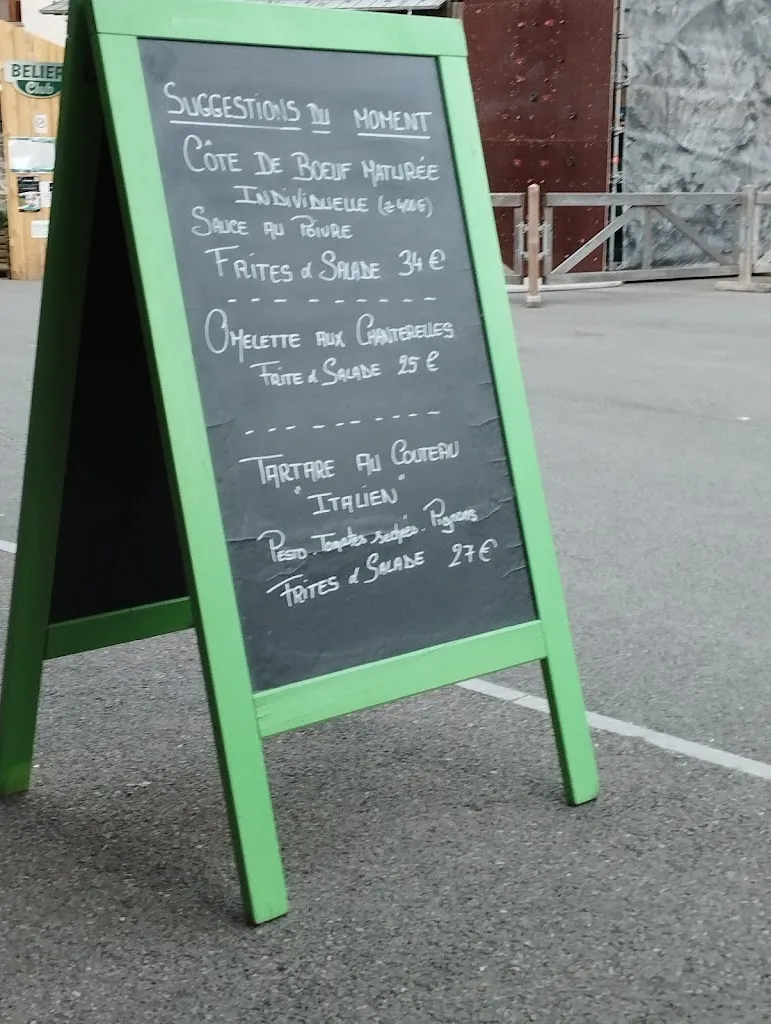 BELIER
Club
SUGGESTIONS DU MOMENT
CÔTE DE BOEUF MATURÉE
INDIVIDUELLE (± 400G)
SAUCE AU POIVRE
FRITES & SALADE 34 €
OMELETTE AUX CHANTERELLES
FRITE & SALADE 25 €
TARTARE AU COUTEAU
"ITALIEN"
PESTO. Tomates sechés. Pignons
FRITES & SALADE 27 €